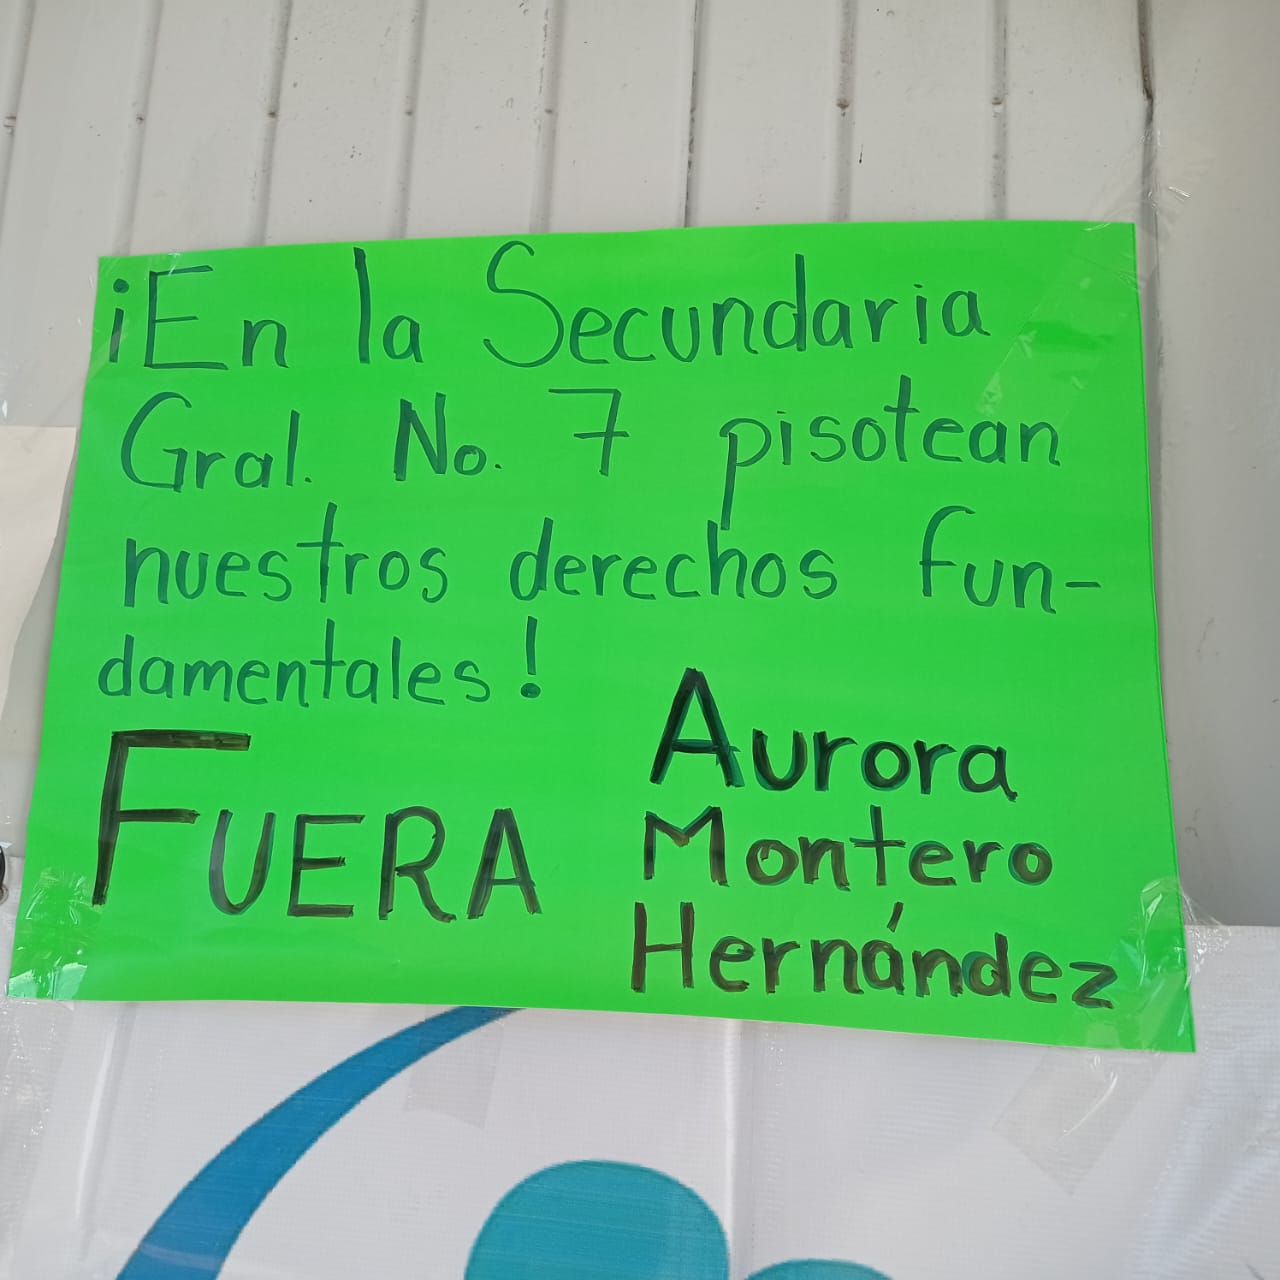 ¡En la Secundaria
Gral. No. 7 pisotean
nuestros derechos fun-
damentales!
FUERA
Aurora
Montero
Hernández